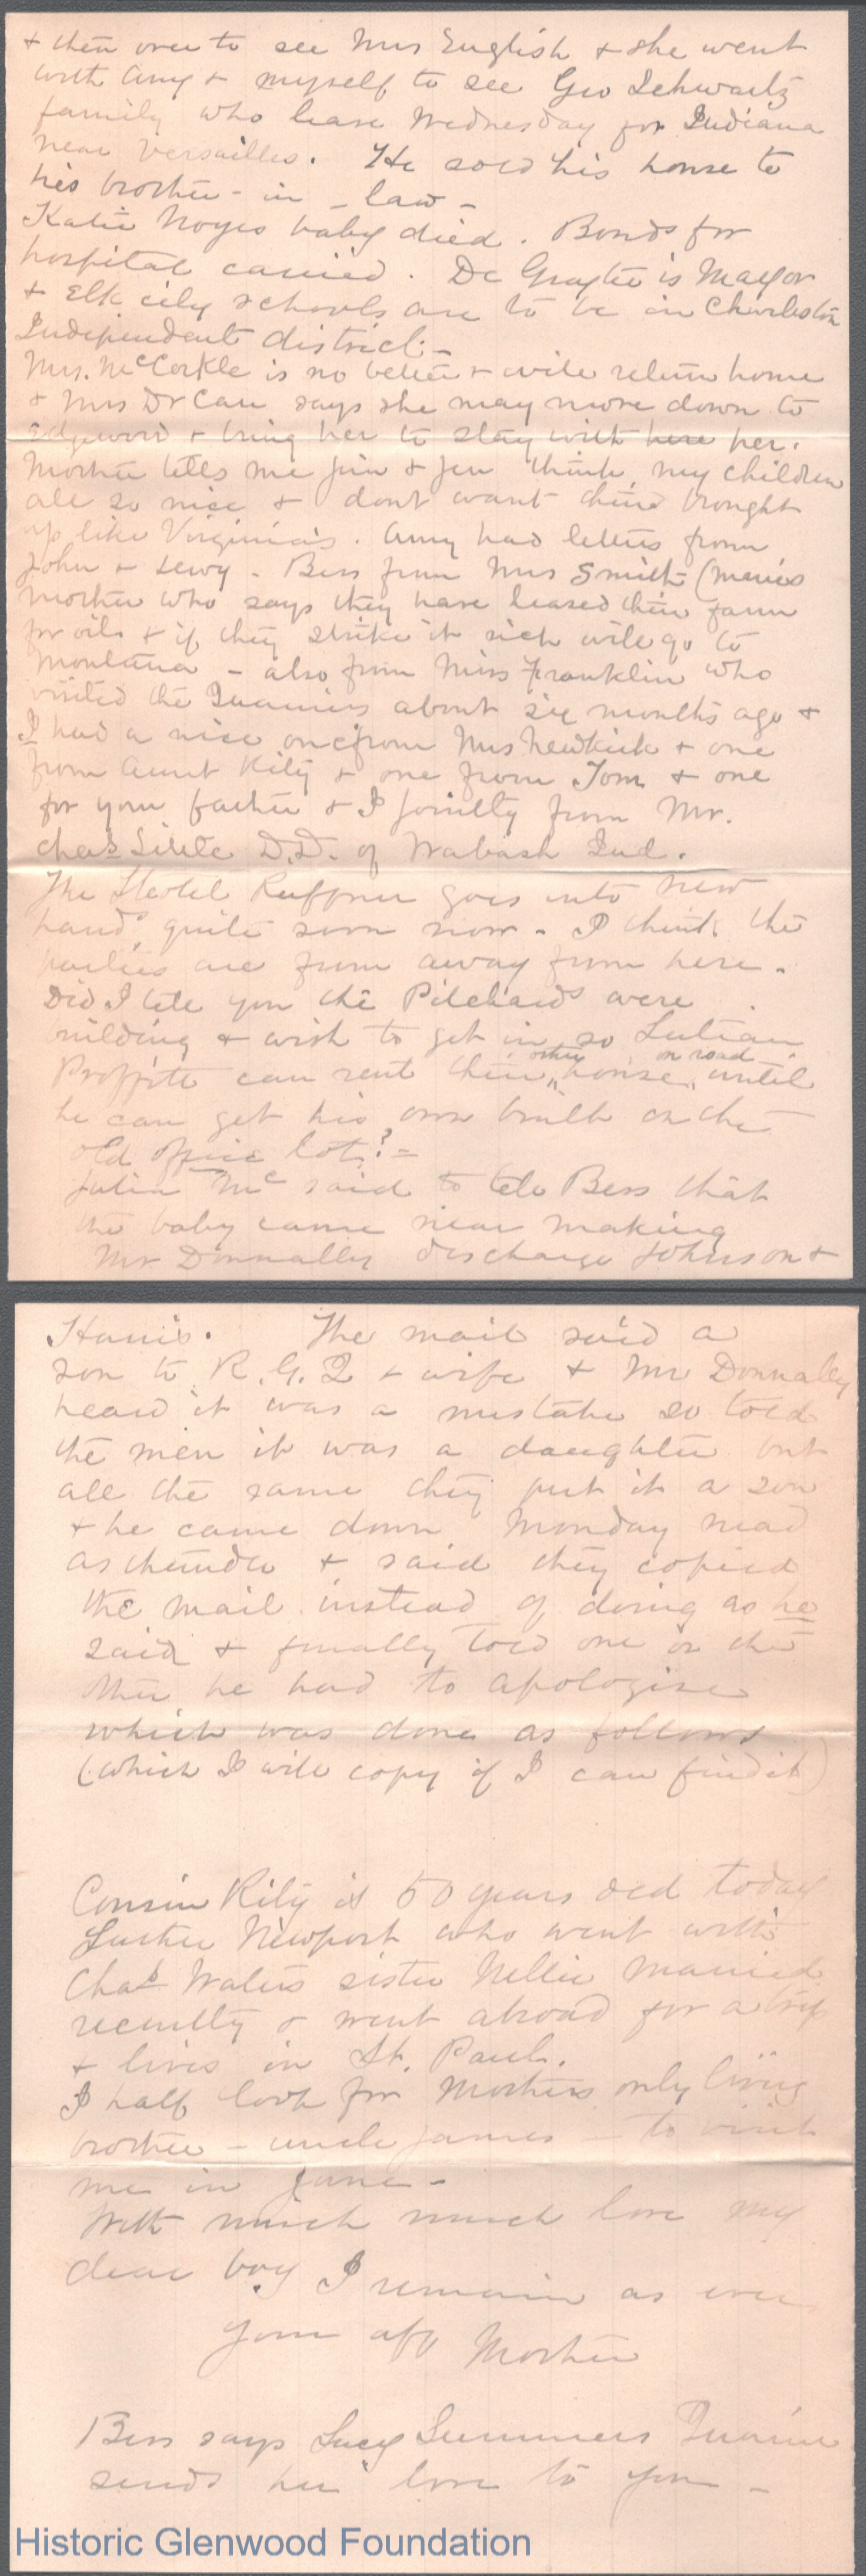 + then over to see Mrs English + she went
with Amy + myself to see Geo Schwartz
family who leave Wednesday for Indiana
near Versailles. He sold his house to
his brother - in - law -
Katie Noyes baby died. Bonds for
hospital carried. De Gruyter is Mayor
+ Elk city schools are to be in Charleston
Independent district. -
Mrs. McCorkle is no better + will return home
+ Mrs Dr Carr says she may move down to
Edgewood + bring her to stay with here her.
Mother tells me Jim + Jen think my children
all so nice + dont want theirs brought
up like Virginia's. Amy had letters from
John + Lewy - Bess from Mrs Smith (
mother who says they have leased their farm
for oil + if they strike it rich will go to
Montana - also from Miss Franklin who
visited the Quarriers about six months ago +
I had a nice one from Mrs Newkirk + one
from Aunt Kity + one from Tom + one
for your father + I jointly from Mr.
Chas Little D.D. of Wabash Ind.
The Hotel Ruffner goes into new
hands quite soon now - I think the
parties are from away from here.
Did I tell you the Pilchards were
building + wish to get in so
Proffitt can rent their other house on road until
he can get his own built on the
old office lot? -
Julia Mc said to tell Bess that
the baby came near making
Mr Donnally discharge Johnson +
Harris. The mail said a
son to R. G. Q + wife + Mr Donnally
heard it was a mistake so told
the men it was a daughter but
all the same they put it a son
+ he came down Monday mad
as thunder + said they copied
the mail instead of doing as he
said + finally told one or the
other he had to apologise
which was done as follows
(which I will copy if I can find it)
Cousin Kity is 50 years old today
Luther Newport who went with
Chas Wales sister Nellie married
recently + went abroad for a trip
+ lives in St. Paul.
I half look for Mothers only living
brother - uncle James - to visit
me in June -
With much much love my
dear boy I remain as ever
your aff Mother
Bess says Lucy Summers Quarrier
sends her love to you -
Historic Glenwood Foundation